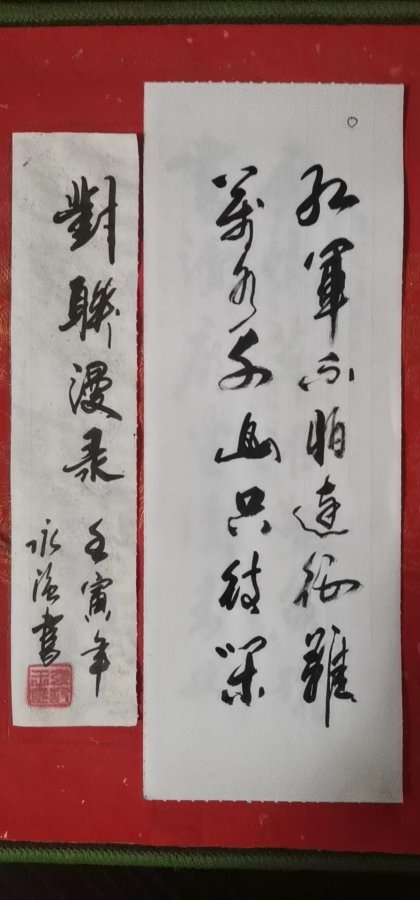 红軍不怕遠征難
萬水千山只等闲
對聯漫录
壬寅年
永 書